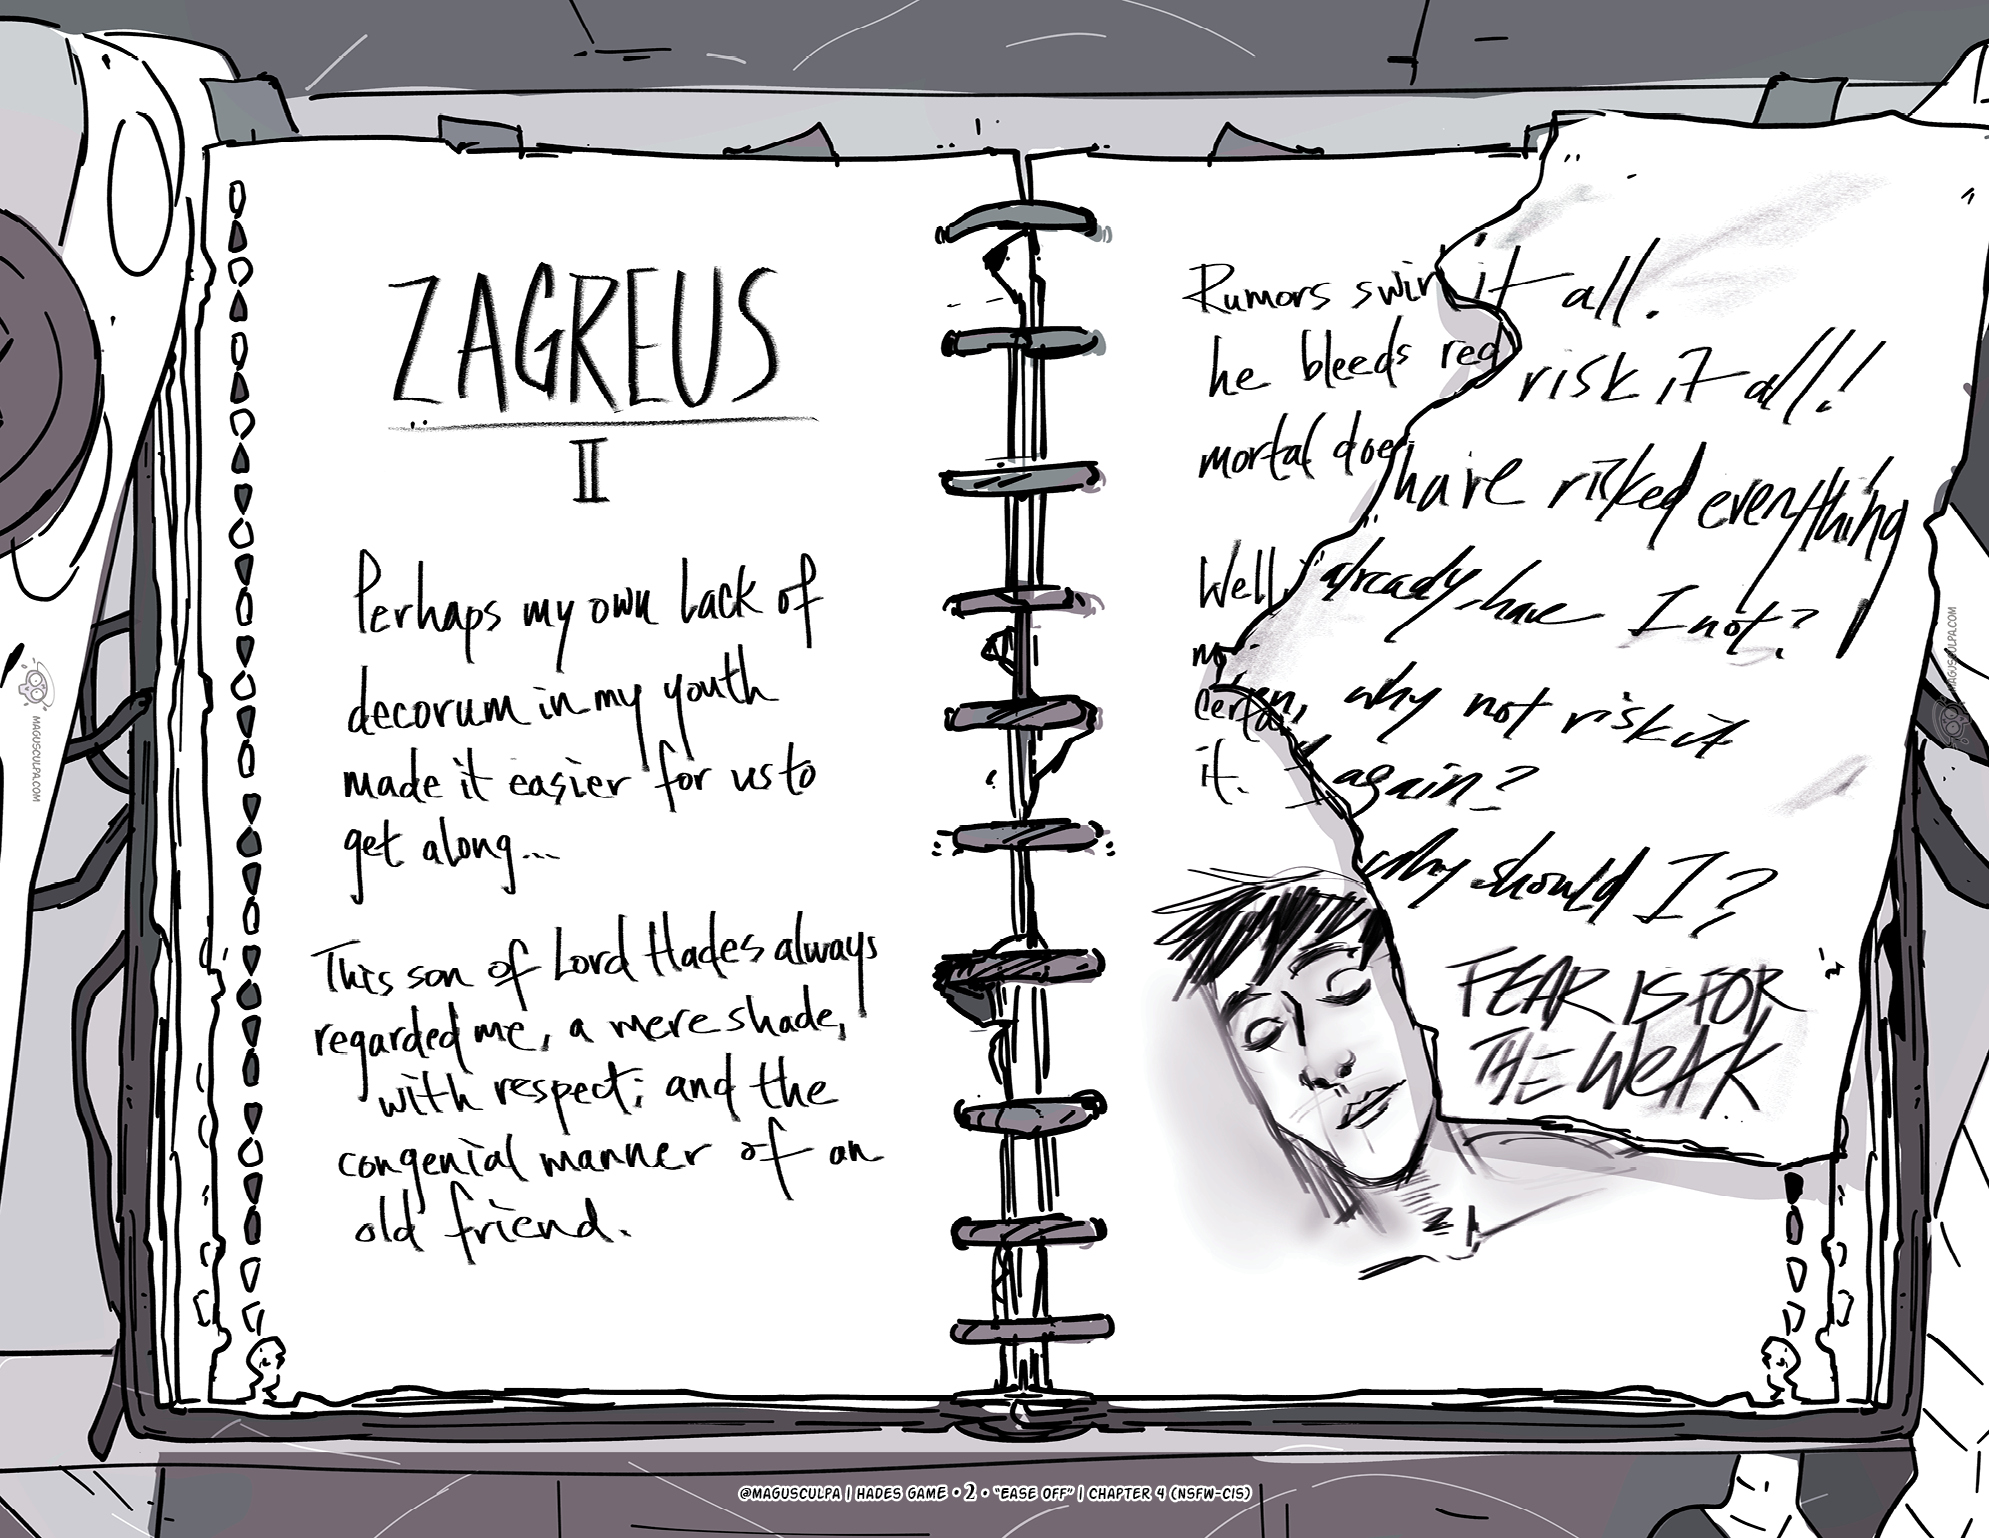 ZAGREUS
II
Perhaps my own lack of
decorum in my youth
made it easier for us to
get along...
This son of Lord Hades always
regarded me, a mere shade,
with respect; and the
congenial manner of an
old friend.
Rumors swir
he bleeds red
mortal doe
Well,
no
certa
it.
it all.
risk it all!
have risked everything
already have I not?
then, why not risk it
again?
why should I?
FEAR IS FOR
THE WEAK
MAGUSCULPA.COM
MAGUSCULPA.COM
@MAGUSCULPA | HADES GAME • 2 • "EASE OFF" | CHAPTER 4 (NSFW-CIS)